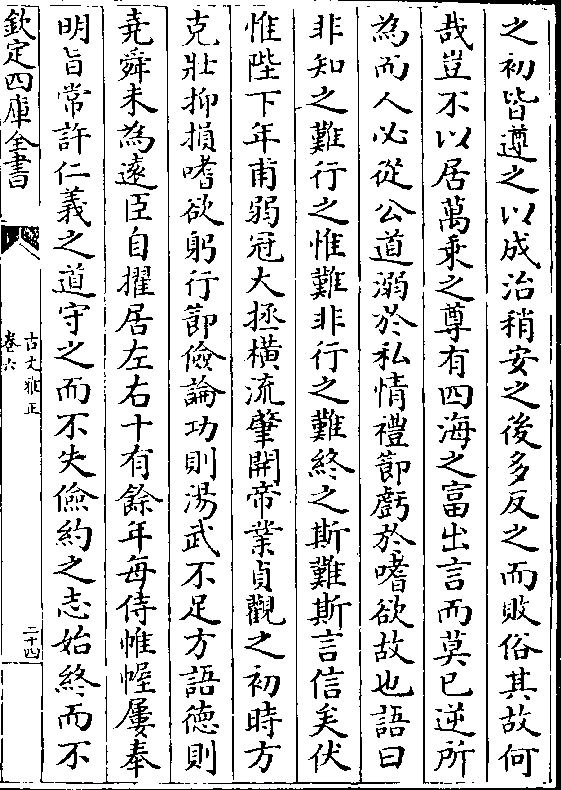 之初皆遵之以成治稍安之後多反之而敗俗其故何
哉豈不以居萬乘之尊有四海之富出言而莫已逆所
為而人必從公道溺於私情禮節虧於嗜欲故也語曰
非知之難行之惟難非行之難終之斯難斯言信矣伏
惟陛下年甫弱冠大拯橫流肇開帝業貞觀之初時方
克壯抑損嗜欲躬行節儉論功則湯武不足方語徳則
堯舜未為遠臣自擢居左右十有餘年每侍帷幄屢奉
明旨常許仁義之道守之而不失儉約之志始終而不
欽定四庫全書
古文雅正
卷六
二十四